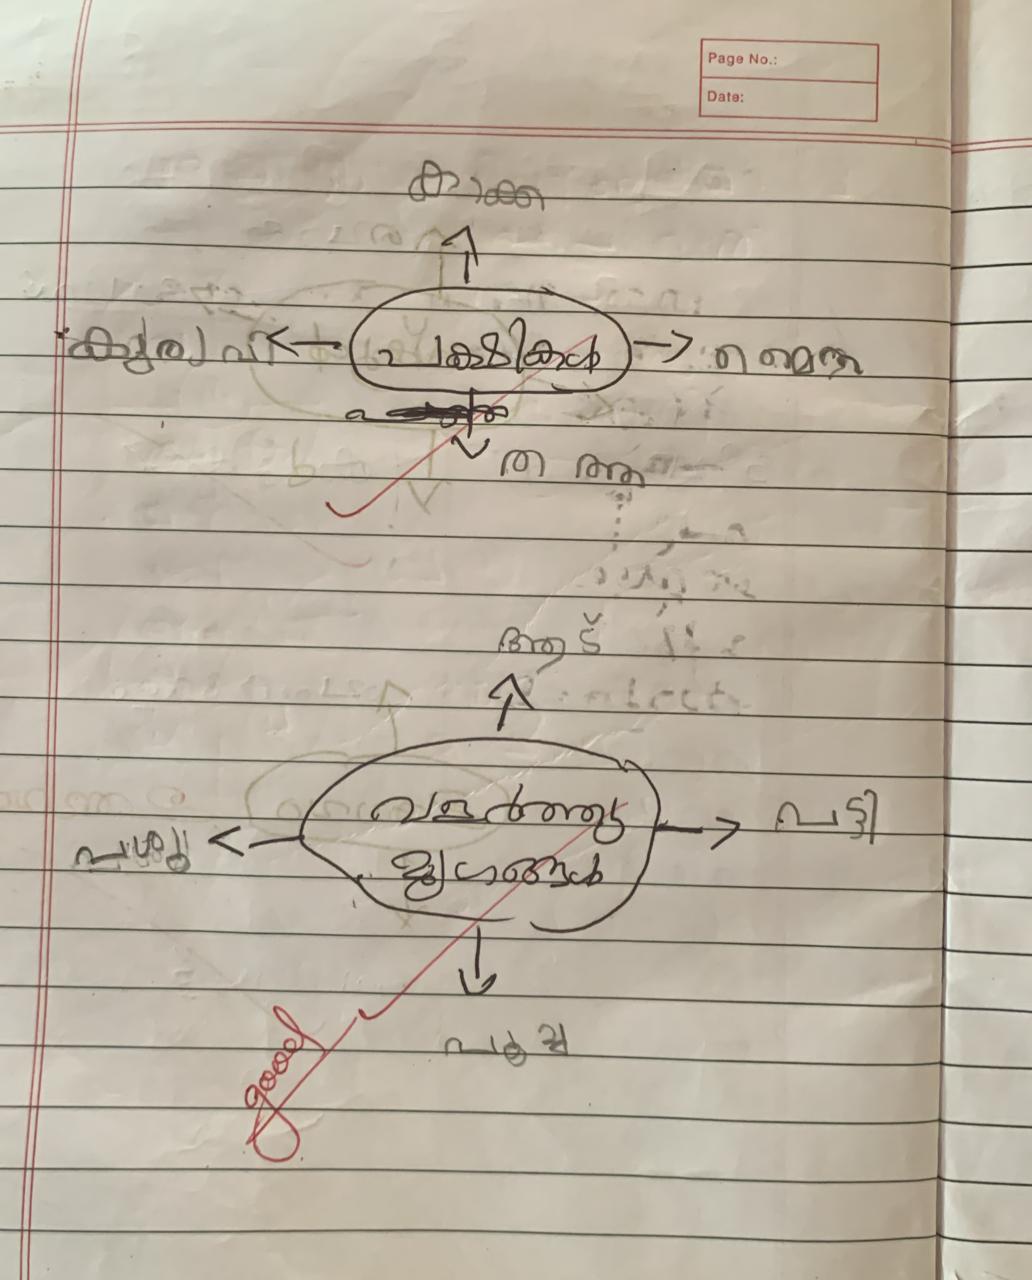 Page No.:
Date:
കാക്ക
കുരുവി
പക്ഷികൾ
മൈന
തത്ത
ആട്
വളർത്തു
മൃഗങ്ങൾ
പട്ടി
പശു
പൂച്ച
good